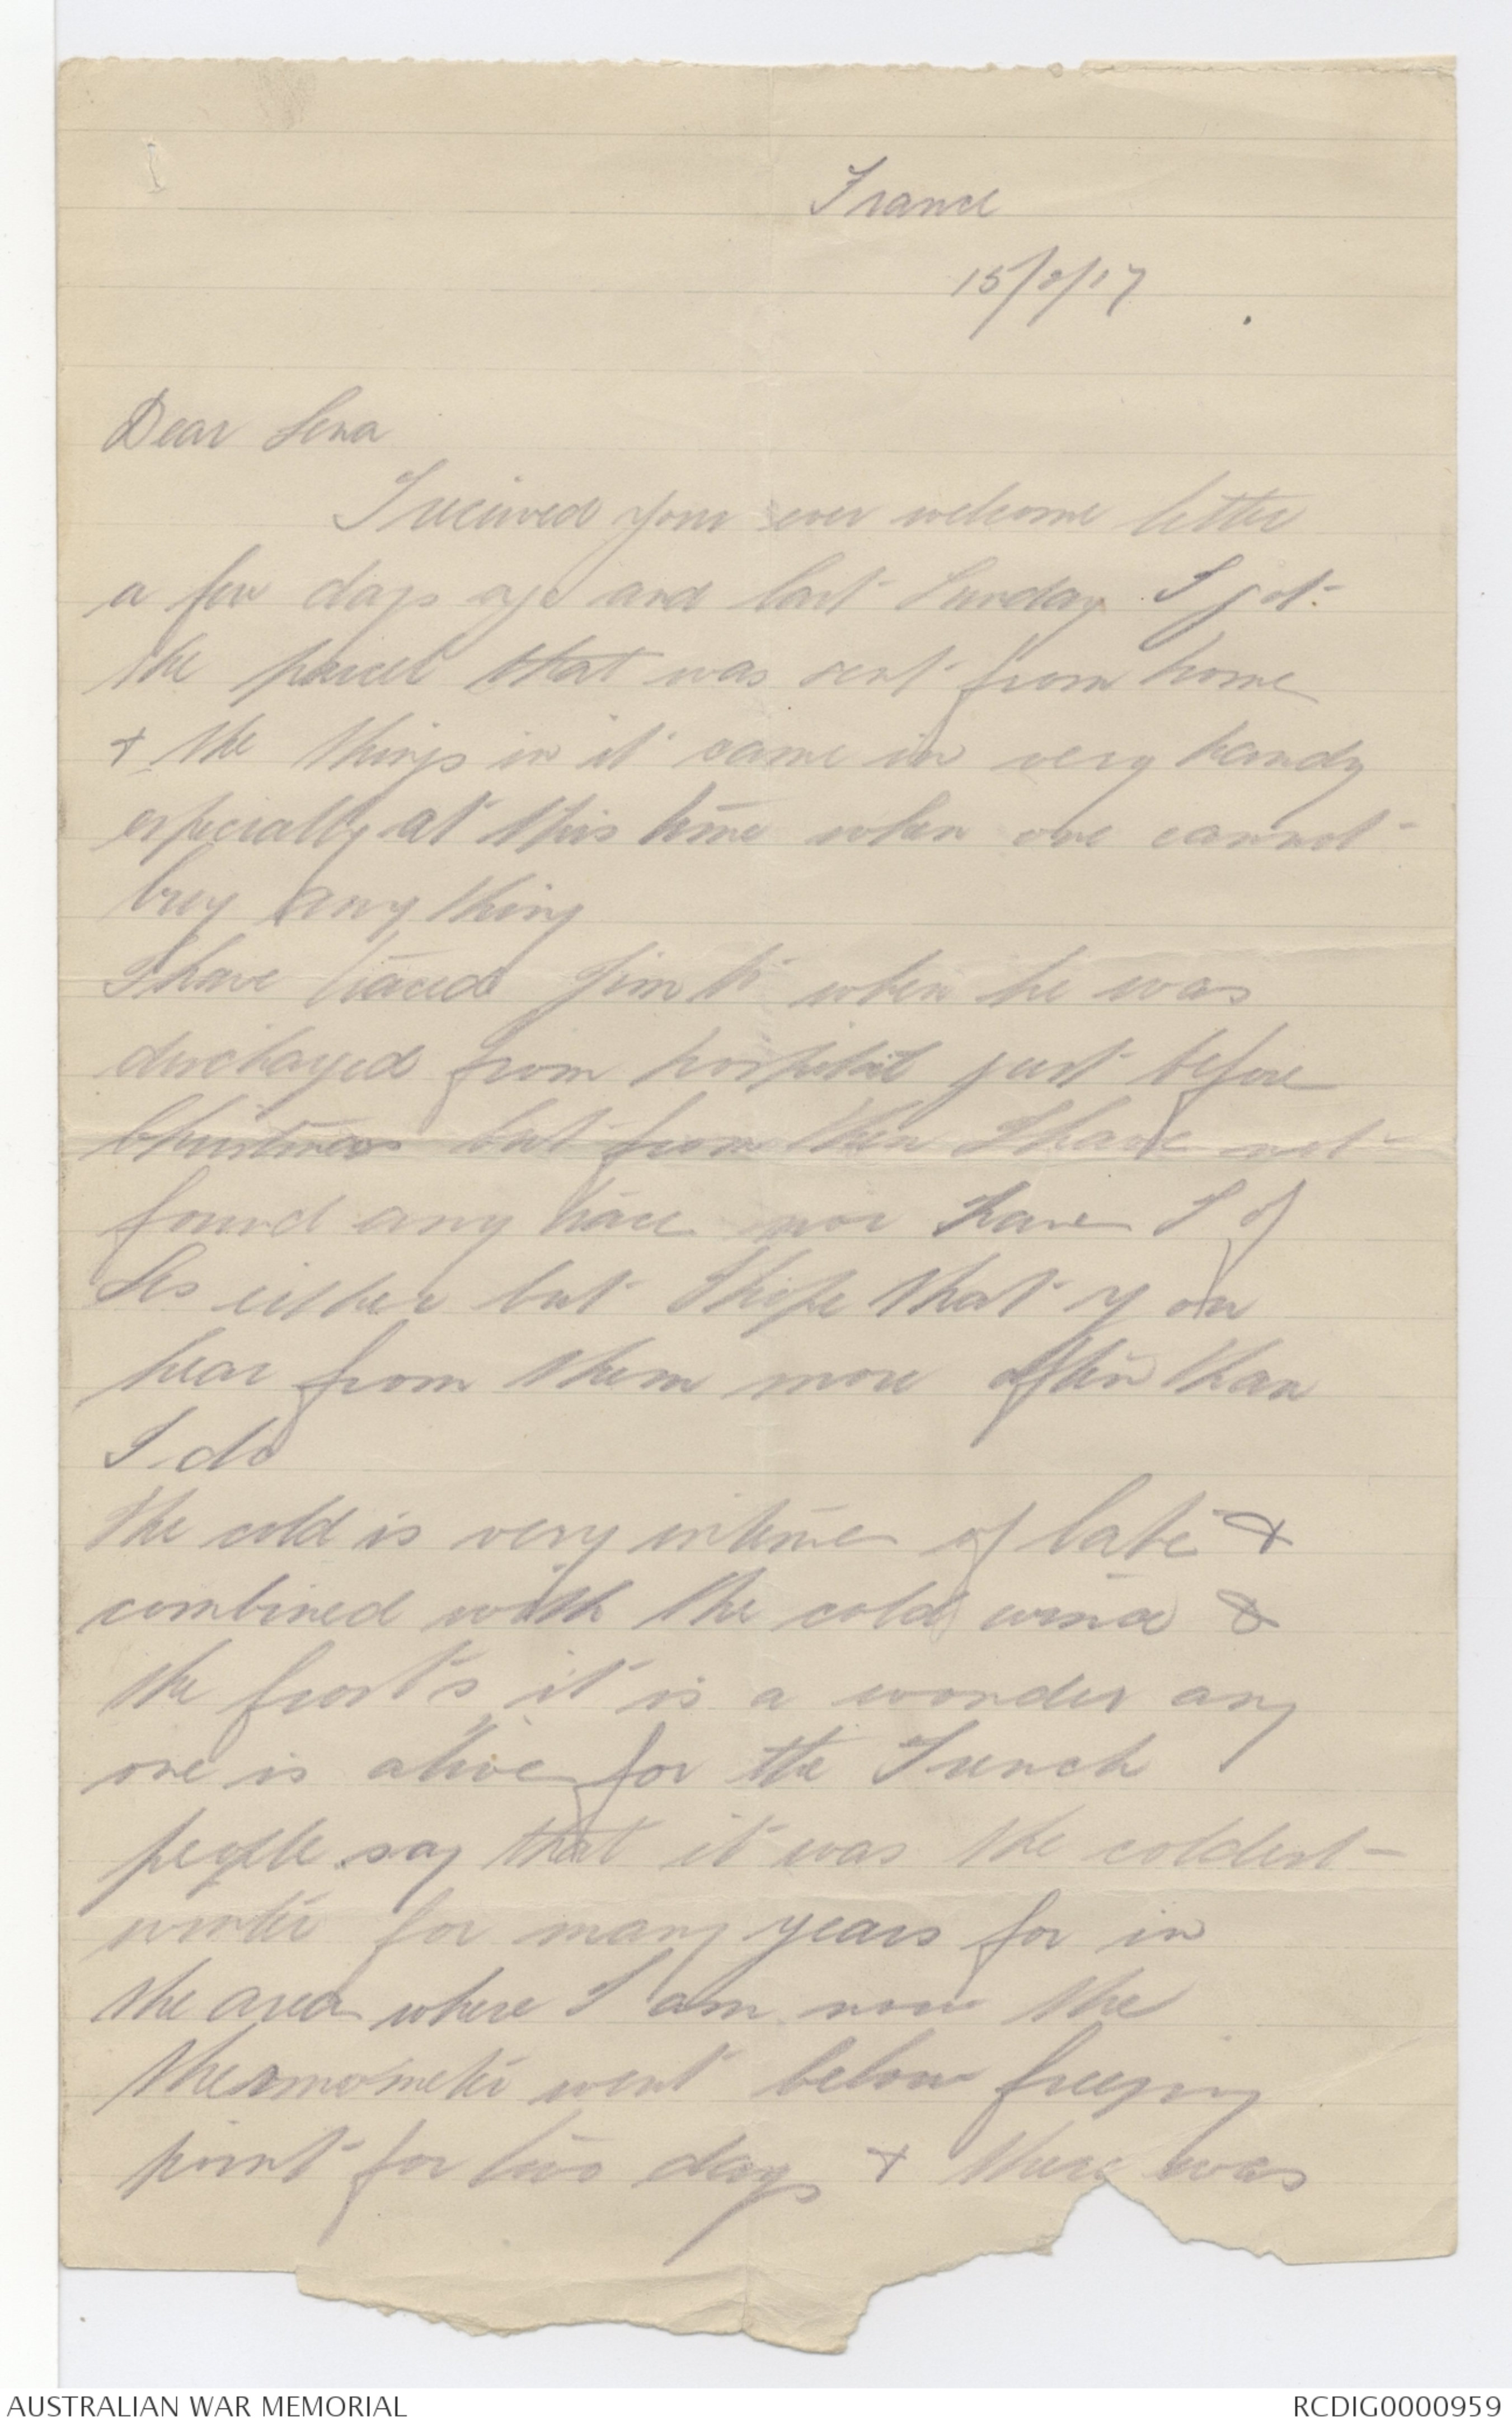 France
15/2/17
Dear Lena
I recieved your ever welcome letter
a few days ago and last Sunday I got
the parcel that was sent from home
& the things in it came in very handy
especially at this time when one cannot
buy any thing
I have traced Jim to when he was
discharged from hospital just before
Christmas but from then I have not
found any trace nor have I of
Les either but I hope that you
hear from them more often than
I do
The cold is very intense of late &
combined with the cold wind &
the frosts it is a wonder any
one is alive for the French
people say that it was the coldest
winter for many years for in
the area where I am now the
thermometer went below freezing
point for two days & there was
AUSTRALIAN WAR MEMORIAL
RCDIG0000959